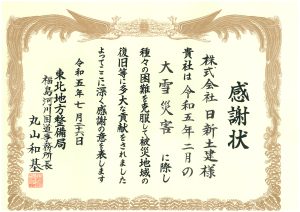 感謝状
株式会社日新土建様
貴社は令和五年二月の
大雪災害に際し
種々の困難を克服して被災地域の
復旧等に多大な貢献をされました
よってここに深く感謝の意を表します
令和五年七月二六日
東北地方整備局
福島河川国道事務所長
丸山和基